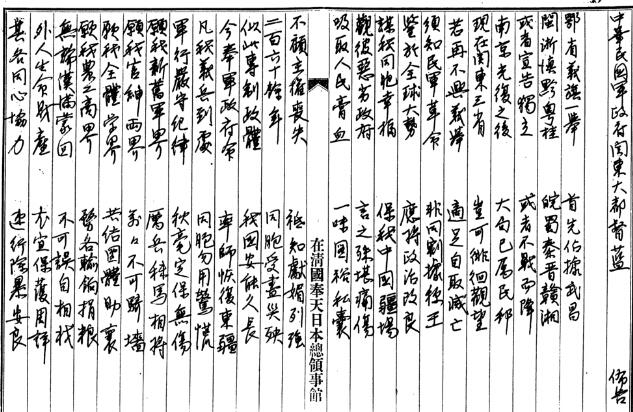 中華民國軍政府関東大都督藍 佈告
鄂省義旗一舉 首先佔據武昌
閩浙滇黔粤桂 皖蜀秦晋贛湘
或者宣告獨立 或者不戰而降
南京光復之後 大局已属民邦
現在関東三省 豈可徘徊觀望
若再不興義舉 適足自取滅亡
須知民軍革命 非同割據王
鑒於全球大勢 應將政治改良
謀我同胞幸福 保我中國疆場
觀彼惡劣政府 言之殊堪痛傷
吸取人民膏血 一味図裕私囊
在清國奉天日本總領事館
不顧主權喪失 祗知獻媚列強
二百六十餘年 同胞受盡災殃
似此專制政體 我國安能久長
今奉軍政府命 率師恢復東疆
凡我義兵到處 同胞勿用驚慌
軍行嚴守紀律 秋毫定保無傷
願我新舊軍界 厲兵秣馬相將
願我官紳両界 萬々不可騎墻
願我全體学界 共结團體助襄
願我農工商界 各輸餉捐粮
無論漢満蒙回 不可誤自相戕
外人生命財産 宜保護周詳
其各同心協力 速行除暴安良